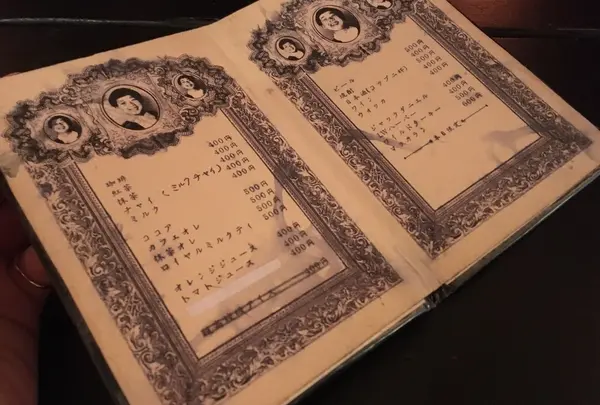 珈琲 400円
紅茶 400円
抹茶 400円
チャイ (ミルクチャイ) 400円
ミルク 400円
ココア 500円
カフェオレ 500円
抹茶オレ 500円
ロイヤルミルクティ 500円
オレンジジュース 400円
トマトジュース 400円
ビール 500円
焼酎 400円
日本酒(コップ一杯) 400円
ワイン 400円
ウォッカ 400円
ジャックダニエル